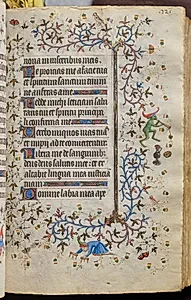 noua in uisceribus meis
Ne proicias me a facie tua
et spiritum sanctum tuum
ne auferas a me
Redde michi leticiam salu
taris tui et spiritu principa
li confirma me
Docebo iniquos uias tuas
et impij ad te conuertentur
Libera me de sanguinib
deus deus salutis mee et ex
altabit lingua mea iusticiā
tuam
Domine labia mea ape